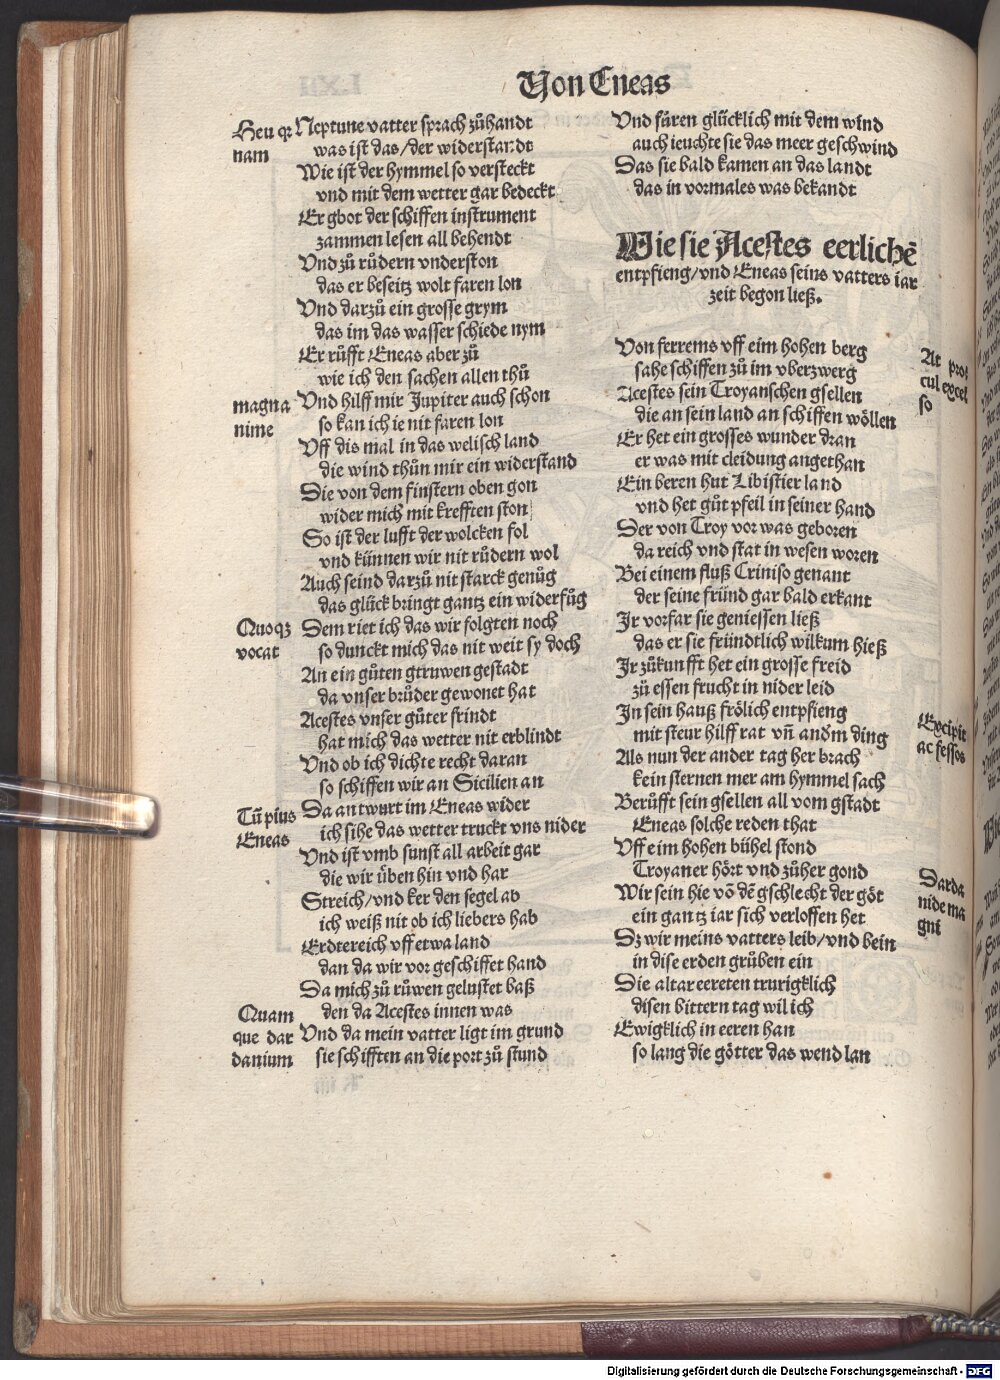 Von Eneas
Heu qͥ
nam
Neptune vatter sprach zůhandt
was ist das/der widerstandt
Wie ist der hymmel so versteckt
vnd mit dem wetter gar bedeckt
Er gbot der schiffen instrument
zammen lesen all behendt
Vnd zů růdern vnderston
das er beseitz wolt faren lon
Vnd darzů ein grosse grym
das im das wasser schiede nym
Er růfft Eneas aber zů
wie ich den sachen allen thů
magna
nime
Vnd hilff mir Jupiter auch schon
so kan ich ie nit faren lon
Vff dis mal in das welisch land
die wind thůn mir ein widerstand
Die von dem finstern oben gon
wider mich mit krefften ston
So ist der lufft der wolcken fol
vnd künnen wir nit růdern wol
Auch seind darzů nit starck genůg
das glück bringt gantz ein widerfůg
Quoqꝫ
vocat
Dem riet ich das wir folgten noch
so dunckt mich das nit weit sy doch
An ein gůten gtruwen gestadt
da vnser brůder gewonet hat
Acestes vnser gůter frindt
hat mich das wetter nit erblindt
Vnd ob ich dichte recht daran
so schiffen wir an Sicilien an
Tū pius
Eneas
Da antwurt im Eneas wider
ich sihe das wetter truckt vns nider
Vnd ist vmb sunst all arbeit gar
die wir üben hin vnd har
Streich/vnd ker den segel ab
ich weiß nit ob ich liebers hab
Erdtereich vff etwa land
dan da wir vor geschiffet hand
Da mich zů růwen gelustet baß
den da Acestes innen was
Quam
que dar
danium
Vnd da mein vatter ligt im grund
sie schifften an die port zů stund
Vnd fůren glücklich mit dem wind
auch ieuchte sie das meer geschwind
Das sie bald kamen an das landt
das in vormales was bekandt
Wie sie Acestes eerlichē
entpfieng/vnd Eneas seins vatters iar
zeit begon ließ.
At pro
cul excel
so
Von ferrems vff eim hohen berg
sahe schiffen zů im vberzwerg
Acestes sein Troyanschen gsellen
die an sein land an schiffen wöllen
Er het ein grosses wunder dran
er was mit cleidung angethan
Ein beren hut Libistier land
vnd het gůt pfeil in seiner hand
Der von Troy vor was geboren
da reich vnd stat in wesen woren
Bei einem fluß Criniso genant
der seine fründ gar bald erkant
Ir vorfar sie geniessen ließ
das er sie fründtlich wilkum hieß
Ir zůkunfft het ein grosse freid
zů essen frucht in nider leid
Excipit
ac fessos
In sein hauß frölich entpfieng
mit steur hilff rat vñ andm̄ ding
Als nun der ander tag her brach
kein sternen mer am hymmel sach
Berůfft sein gsellen all vom gstadt
Eneas solche reden that
Vff eim hohen bühel stond
Troyaner hört vnd zůher gond
Darda
nide ma
gni
Wir sein hie vō dē gschlecht der göt
ein gantz iar sich verloffen het
Dz wir meins vatters leib/vnd bein
in dise erden grůben ein
Die altar eereten trurigklich
disen bittern tag wil ich
Ewigklich in eeren han
so lang die götter das wend lan
Digitalisierung gefördert durch die Deutsche Forschungsgemeinschaft - DFG